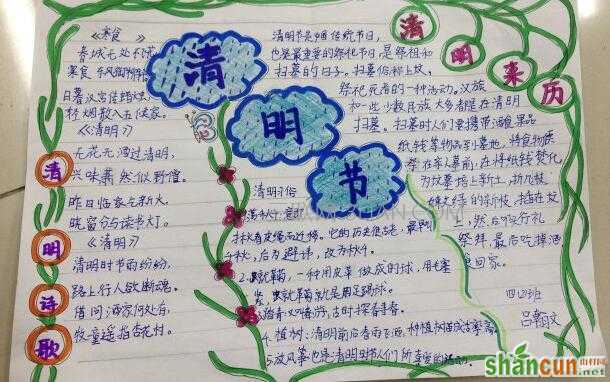 清
明
节
清
明
来
历
清
明
诗
歌
《寒食》
春城无处不飞
寒食东风御柳斜
日暮汉宫传蜡烛,
轻烟散入五侯家。
《清明》
无花无酒过清明,
兴味萧然似野僧。
昨日临家乞新火,
晓窗分与读书灯。
《清明》
清明时节雨纷纷,
路上行人欲断魂。
借问酒家何处有,
牧童遥指杏花村。
清明节是中国传统节日,
也是最重要的祭祀节日,是祭祖和
扫墓的日子。扫墓俗称上坟,
祭祀死者的一种活动。汉族
和一些少数民族大多都是在清明
扫墓。扫墓时人们要携带酒食果品
纸钱等物品到墓地,将食物
祭在亲人墓前,在将纸钱焚化
为坟墓培上新土,折几枝
嫩绿的新枝,插在坟
上,然后叩头行礼
祭拜,最后吃掉酒
回家。
清明习俗
千秋,后为避讳,改为秋千。
2.蹴鞠,一种用皮革做成的球,用
紧,蹴鞠就是用足踢球。
4.植树:清明前后春雨飞洒,种植树苗成
5.放风筝也是清明时节人们所喜爱的活动。
四(2)班
山村网
shancun.net